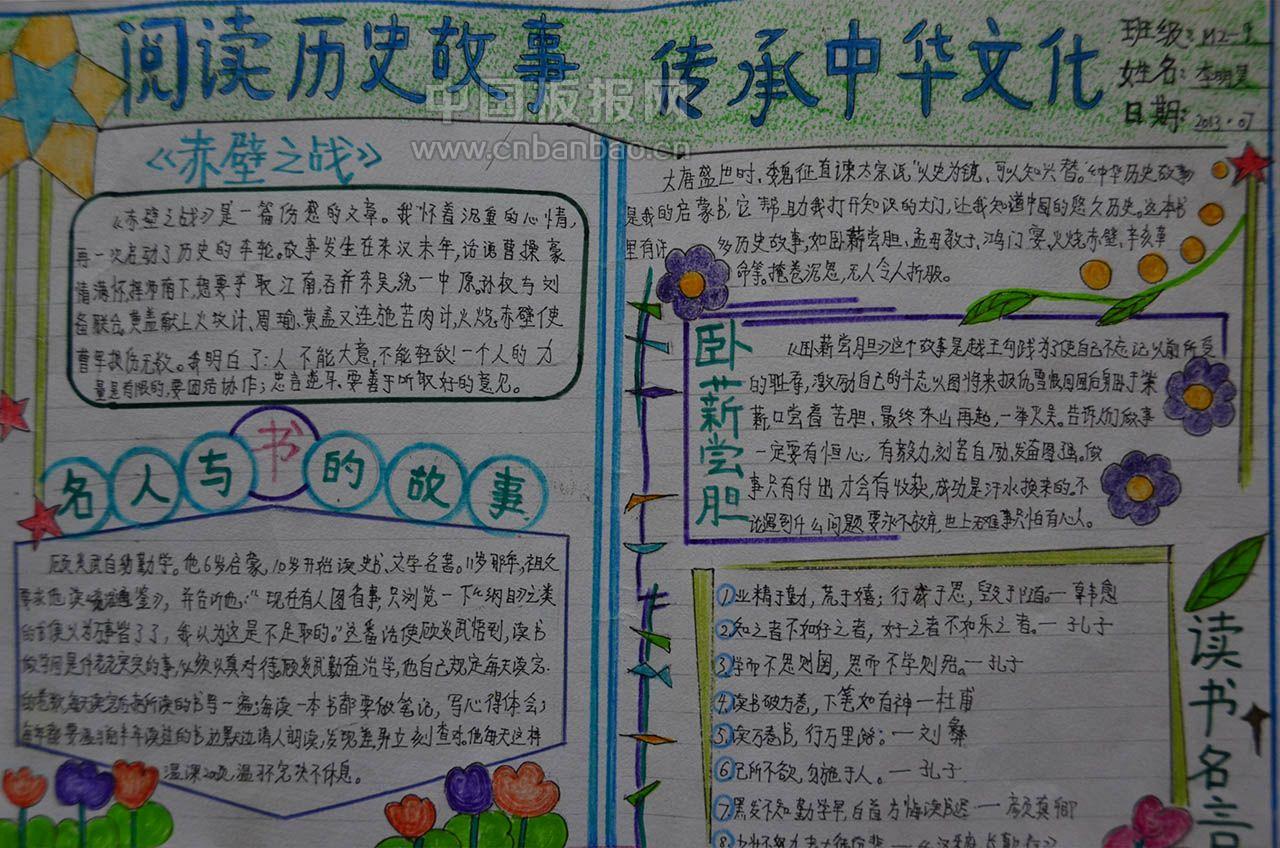 阅读历史故事 传承中华文化
班级:M2-9
姓名:李明昊
日期:2013.07
中国板报网
www.cnbanbao.cn
《赤壁之战》
《赤壁之战》是一篇伤感的文章。我怀着沉重的心情,
再一次启动了历史的车轮。故事发生在东汉末年,话说曹操豪
情满怀挥师南下,想要争取江南,吞并东吴,统一中原。孙权与刘
备联合,黄盖献上火攻计、周瑜、黄盖又连施苦肉计,火烧赤壁使
曹军损伤无数。我明白了:人不能大意,不能轻敌!一个人的力
量是有限的,要团结协作;忠言逆耳、要善于听取好的意见。
名人与书的故事
顾炎武自幼勤学。他6岁启蒙,10岁开始读史书、文学名著。11岁那年,祖父
要求他读资治通鉴》,并告诉他:“现在有人图省事,只浏览一下《纲目》之类
的书便以为万事皆了了,我认为这是不足取的。”这番话使顾炎武悟到,读书
做学问是件老老实实的事,必须认真对待。顾炎武勤奋治学,他自己规定每天读完
的卷数,每天读完后把所读的书写一遍;每读一本书都要做笔记,写心得体会;
温课200页,温不完决不休息。
大唐盛世时,魏征直谏太宗说“以史为镜、可以知兴替。”《中华历史故事》
是我的启蒙书,它帮助我打开知识的大门,让我知道中国的悠久历史。这本书
里有许多历史故事,如卧薪尝胆、孟母教子、鸿门宴、火烧赤壁、辛亥革
命等。掩卷沉思,无人令人折服。
卧薪尝胆
《卧薪尝胆》这个故事是越王勾践为了使自己不忘记以前所受
的耻辱,激励自己的斗志以图将来报仇雪恨回国后身卧于柴
薪,口尝着苦胆、最终东山再起,一举灭吴。告诉人们做事
一定要有恒心,有毅力,刻苦自励,发奋图强。做
事只有付出才会有收获,成功是汗水换来的。不
论遇到什么问题要永不放弃,世上无难事只怕有心人。
读书名言
①业精于勤,荒于嬉;行成于思,毁于随。—韩愈
②知之者不如好之者,好之者不如乐之者。—孔子
③学而不思则罔,思而不学则殆。—孔子
④读书破万卷,下笔如有神—杜甫
⑤读万卷书,行万里路。—刘彝
⑥己所不欲,勿施于人。—孔子
⑦黑发不知勤学早,白首方悔读书迟.—颜真卿